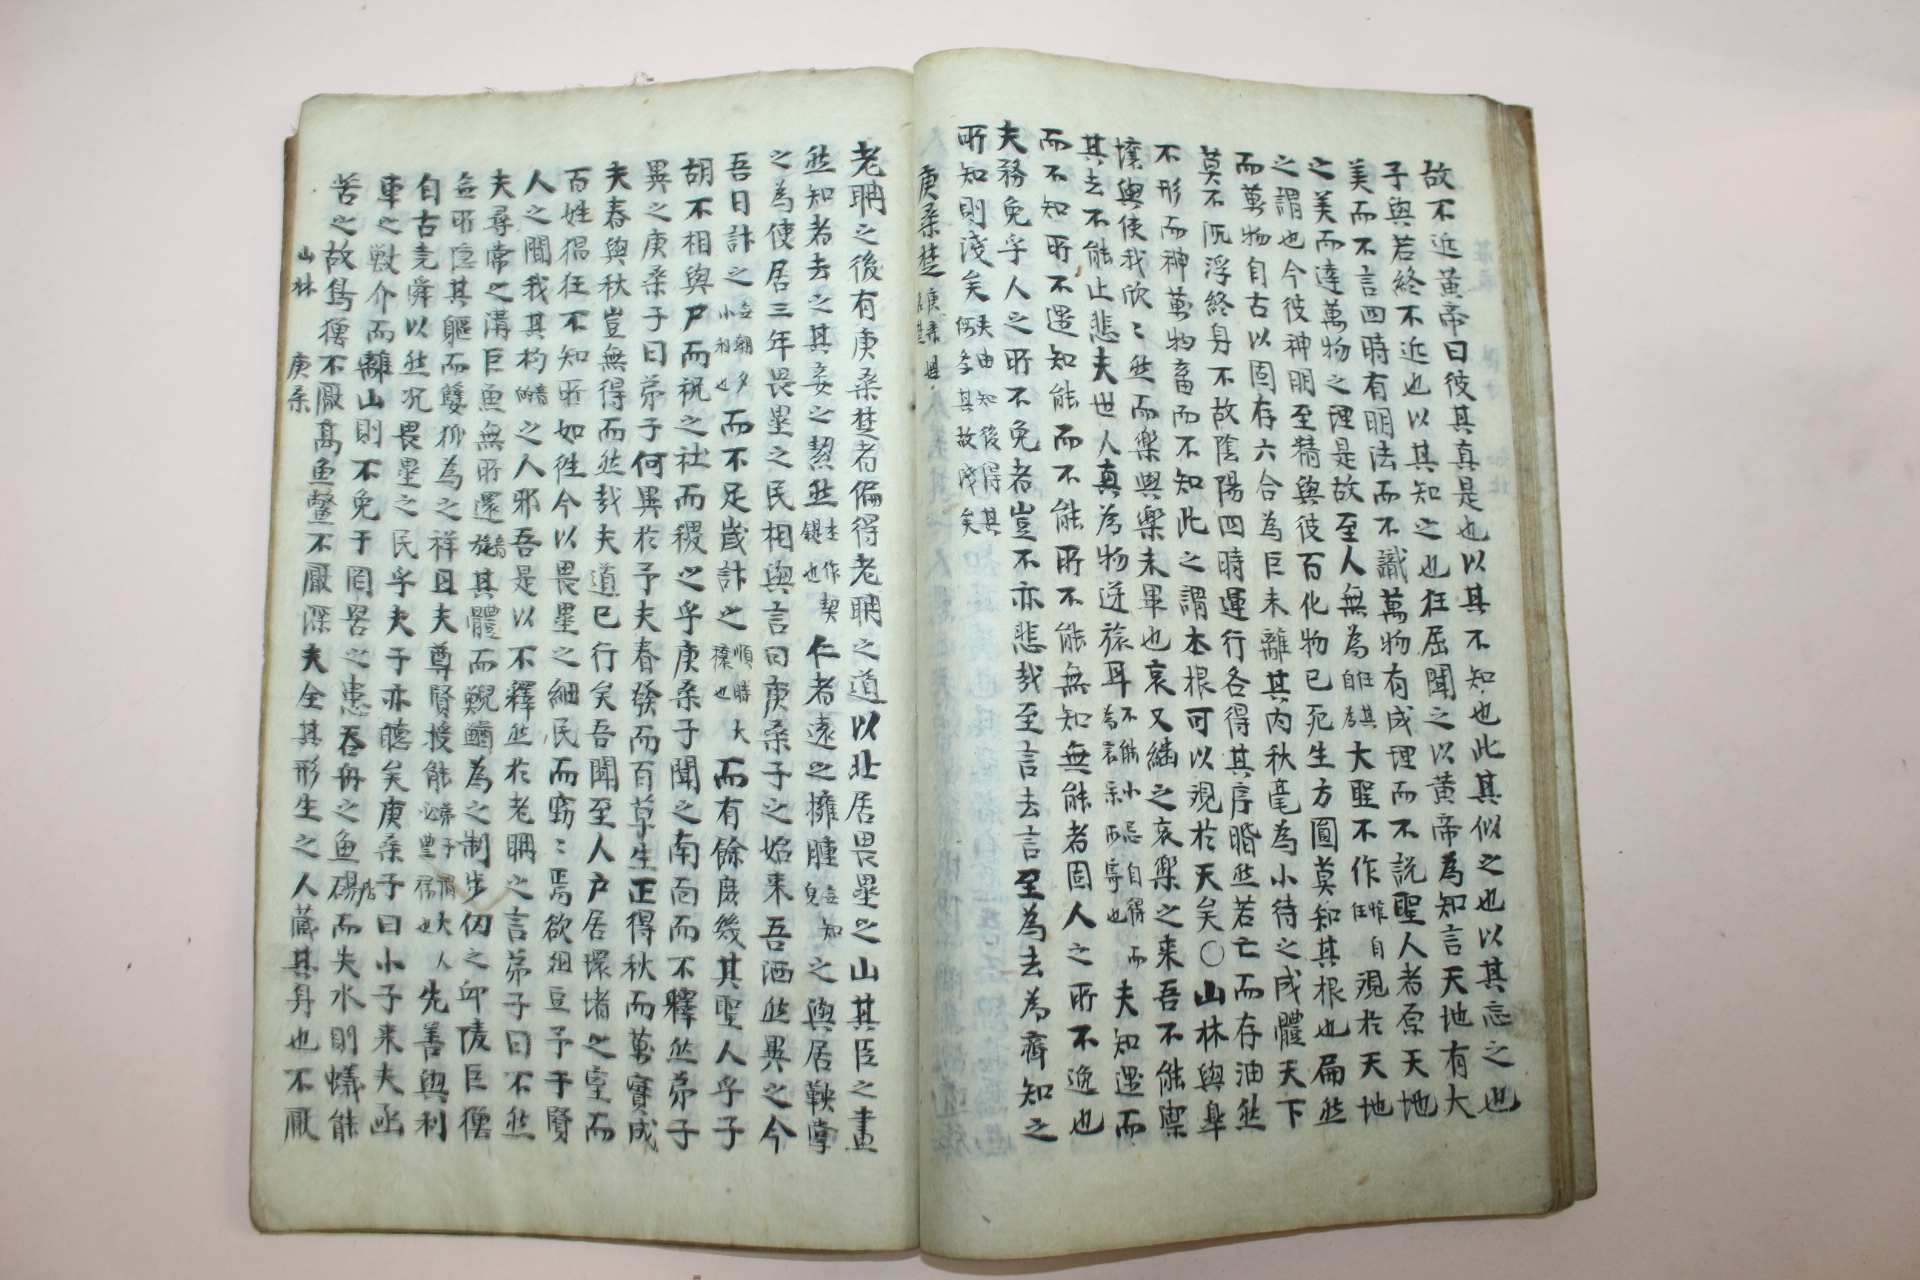 故不近黃帝曰彼其真是也以其不知也此其似之也以其忘之也
子與若終不近也以其知之也狂屈聞之以黃帝為知言天地有大
美而不言四時有明法而不議萬物有成理而不說聖人者原天地
之美而達萬物之理是故至人無為任其自為大聖不作惟自任觀於天地
之謂也今彼神明至精與彼百化物已死生方圓莫知其根也扁然
而萬物自古以固存六合為巨未離其內秋毫為小待之成體天下
莫不沉浮終身不故陰陽四時運行各得其序昏然若亡而存油然
不形而神萬物畜而不知此之謂本根可以觀於天矣〇山林與皐
壤與使我欣〻然而樂與樂未畢也哀又繼之哀樂之来吾不能禦
其去不能止悲夫世人真為物逆旅耳不能小忘自得而為哀樂所寄也夫知遇而
而不知所不遇知能能而不能所不能無知無能者固人之所不逸也
夫務免乎人之所不免者豈不亦悲哉至言去言至為去為齊知之
所知則淺矣夫由知後得其何多其故淺矣
庚桑楚
老聃之後有庚桑楚者偏得老聃之道以北居畏壘之山其臣之畫
然知者去之其妾之絜然仁者遠之擁腫無知皃之與居鞅掌
之為使居三年畏壘之民相與言曰庚桑子之始来吾洒然異之今
吾日計之無朝夕小利也而不足歲計之順時大穰也而有餘庶幾其聖人乎子
胡不相與尸而祝之社而稷之乎庚桑子聞之南面而不釋然弟子
異之庚桑子曰弟子何異於予夫春發而百草生正得秋而萬寶成
夫春與秋豈無得而然哉夫道已行矣吾聞至人尸居環堵之室而
百姓猖狂不知所如徃今以畏壘之細民而竊〻焉欲俎豆予于賢
人之間我其杓音的之人邪吾是以不釋然於老聃之言弟子曰不然
夫尋常之溝巨魚無所還音旋其體而鯢鰌為之制步仞之邱陵巨獸
無所隱其軀而㜸狐為之祥且夫尊賢授能先善與利
自古堯舜以然況畏壘之民乎夫子亦聽矣庚桑子曰小子来夫凾
車之獸介而離山則不免于罔罟之患吞舟之魚碭而失水則蟻能
苦之故鳥獸不厭高魚鼈不厭深夫全其形生之人藏其身也不厭
山林 庚桑